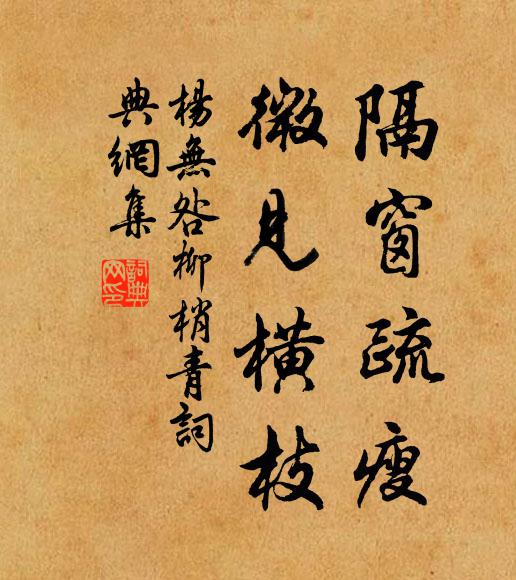 隔窗疏瘦
微見橫枝
楊無咎柳梢青詞
典網集
詞典網印